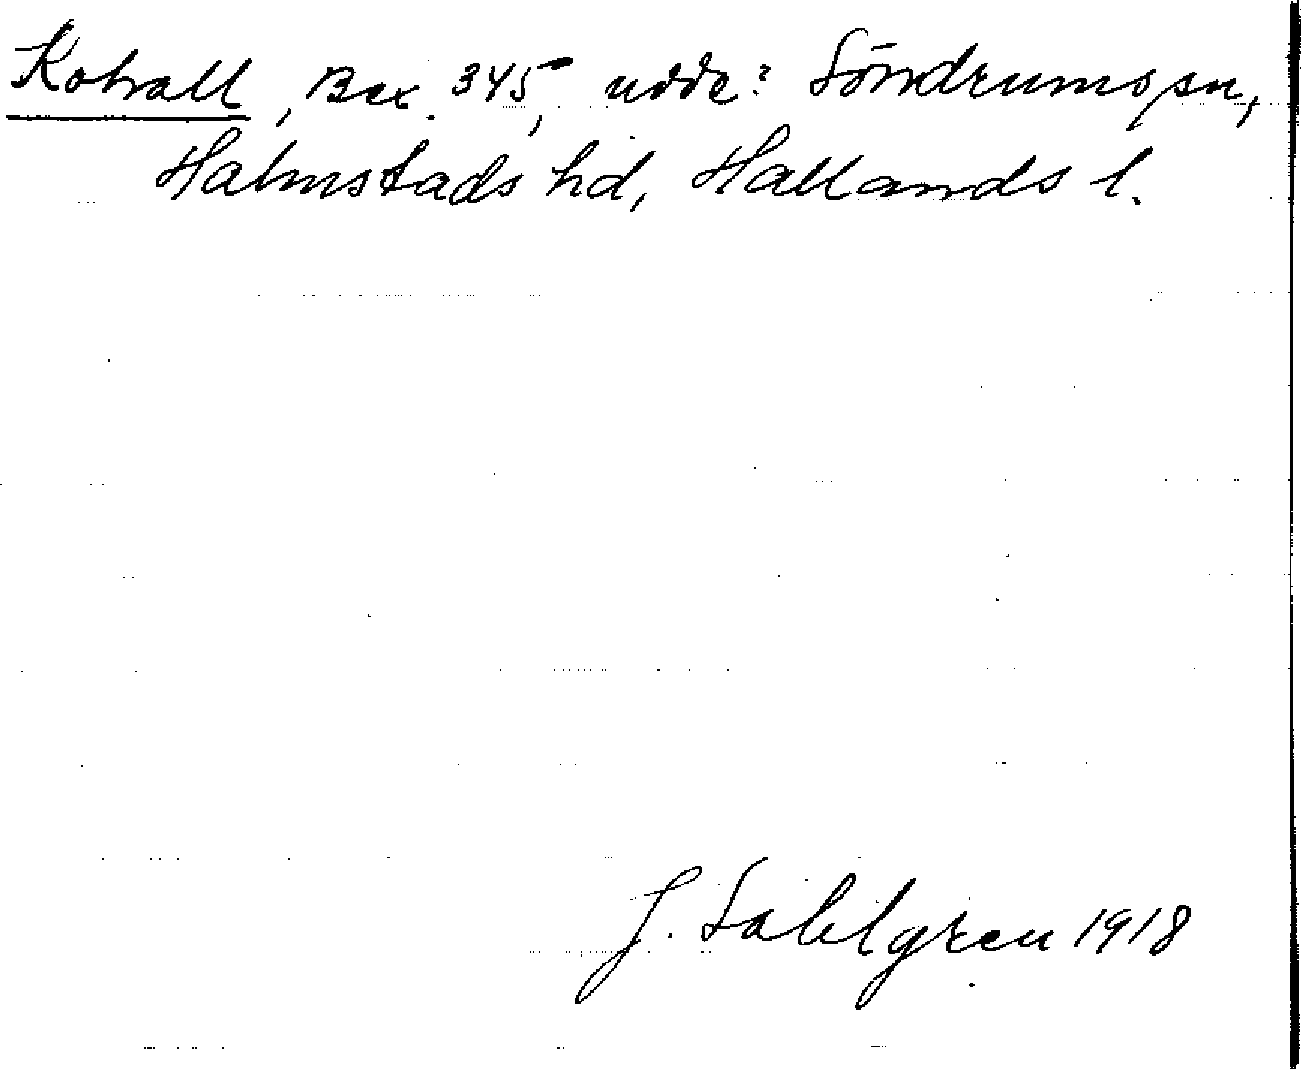 Kohall, Bex. 345, udde? Söndrums sn,
Halmstads hd, Hallands l.
J. Sahlgren 1918